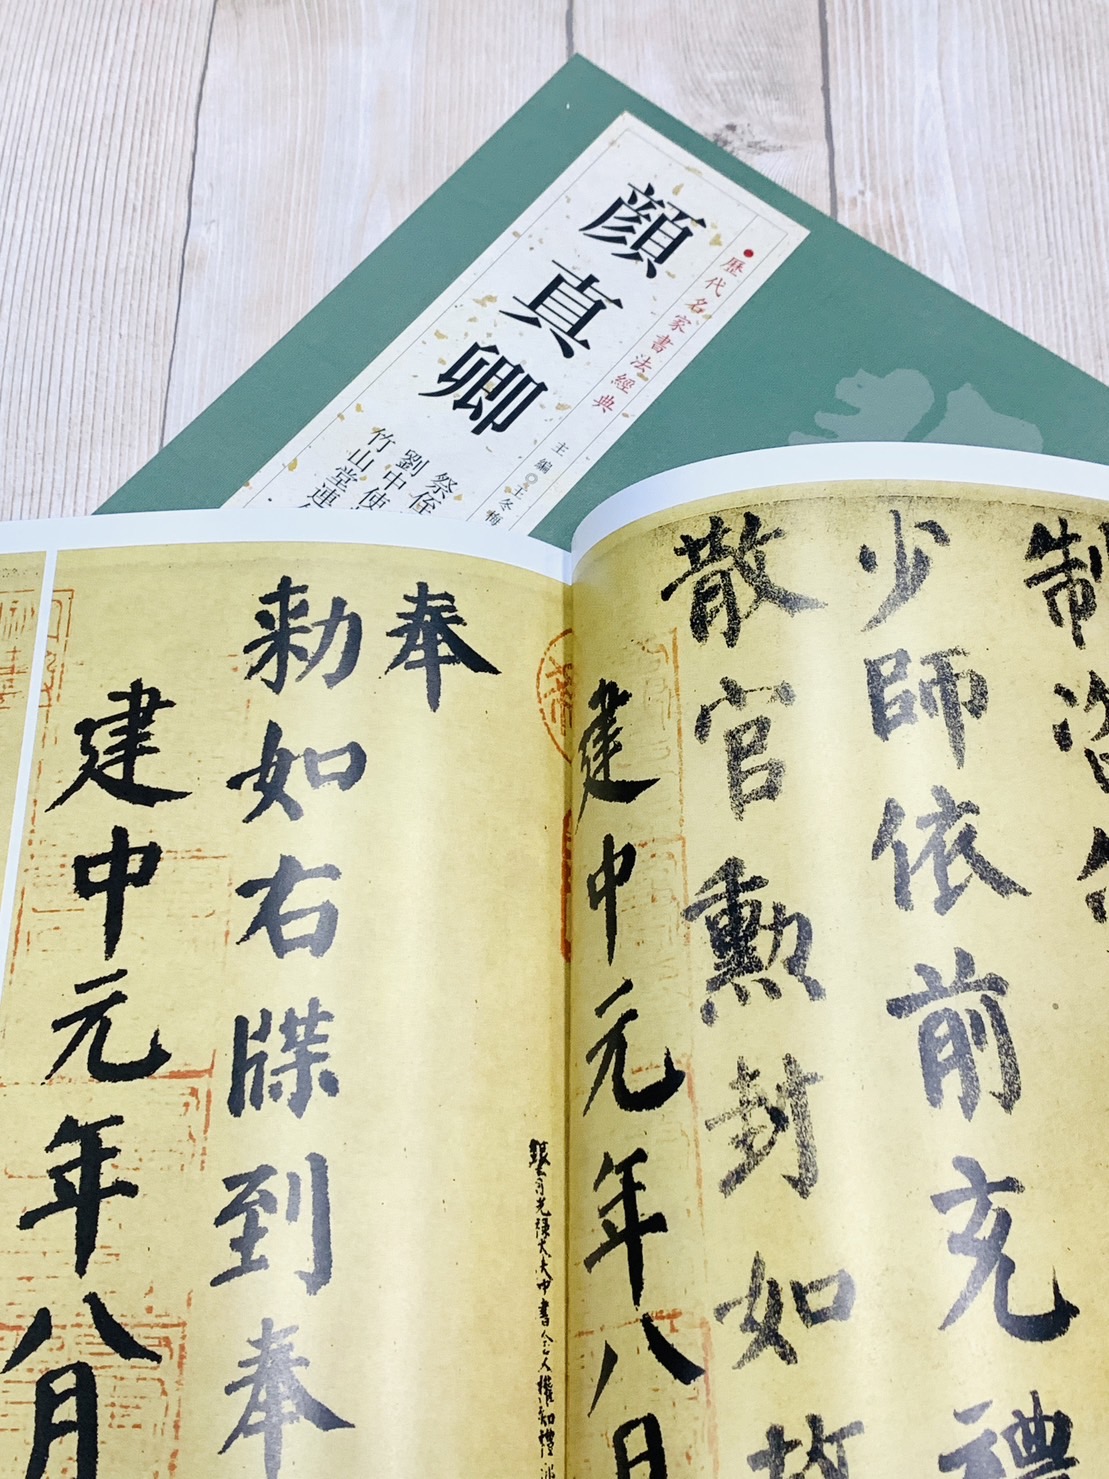 歷代名家書法經典
主編◎王冬梅
顏真卿
祭侄
劉中使
竹山堂連
制
少師依前充禮
散官勲封如故
建中元年八月
銀青光祿大夫中書舍人權知禮
奉
勅如右牒到奉
建中元年八月